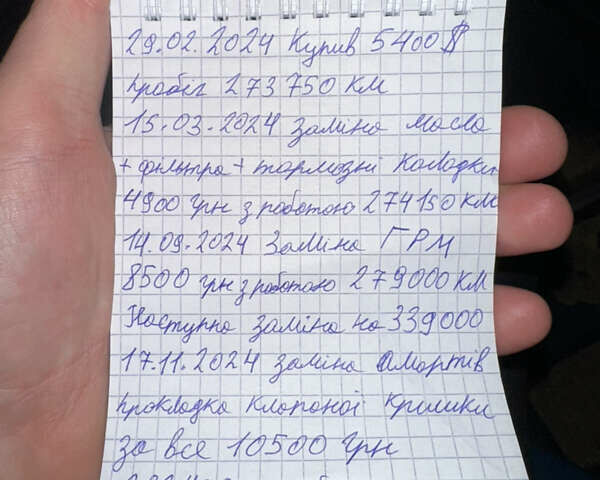 29.02.2024 Купив 5400$
пробіг 273 750 КМ
15.03.2024 Заміна масла
+ фільтра + тормозні Колодки
4900 грн з роботою 274150 КМ
14.09.2024 Заміна ГРМ
8500 грн з роботою 279000 КМ
Наступна заміна на 339000
17.11.2024 заміна Амортів
прокладка клапоної кришки
за все 10500 грн